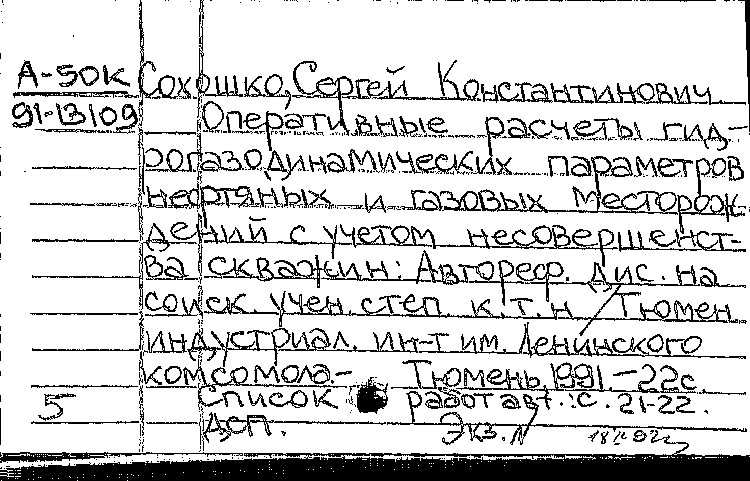 А-50К Сохошко, Сергей Константинович
91-13109 Оперативные расчеты гид-
рогазодинамических параметров
нефтяных и газовых месторож-
дений с учетом несовершенст-
ва скважин: Автореф. дис. на
соиск. учен. степ к.т.н Тюмен
индустриал. ин-т им. Ленинского
комсомола.- Тюмень, 1991.-22с.
5 Список работ авт.: с. 21-22.
ДСП. Экз. N